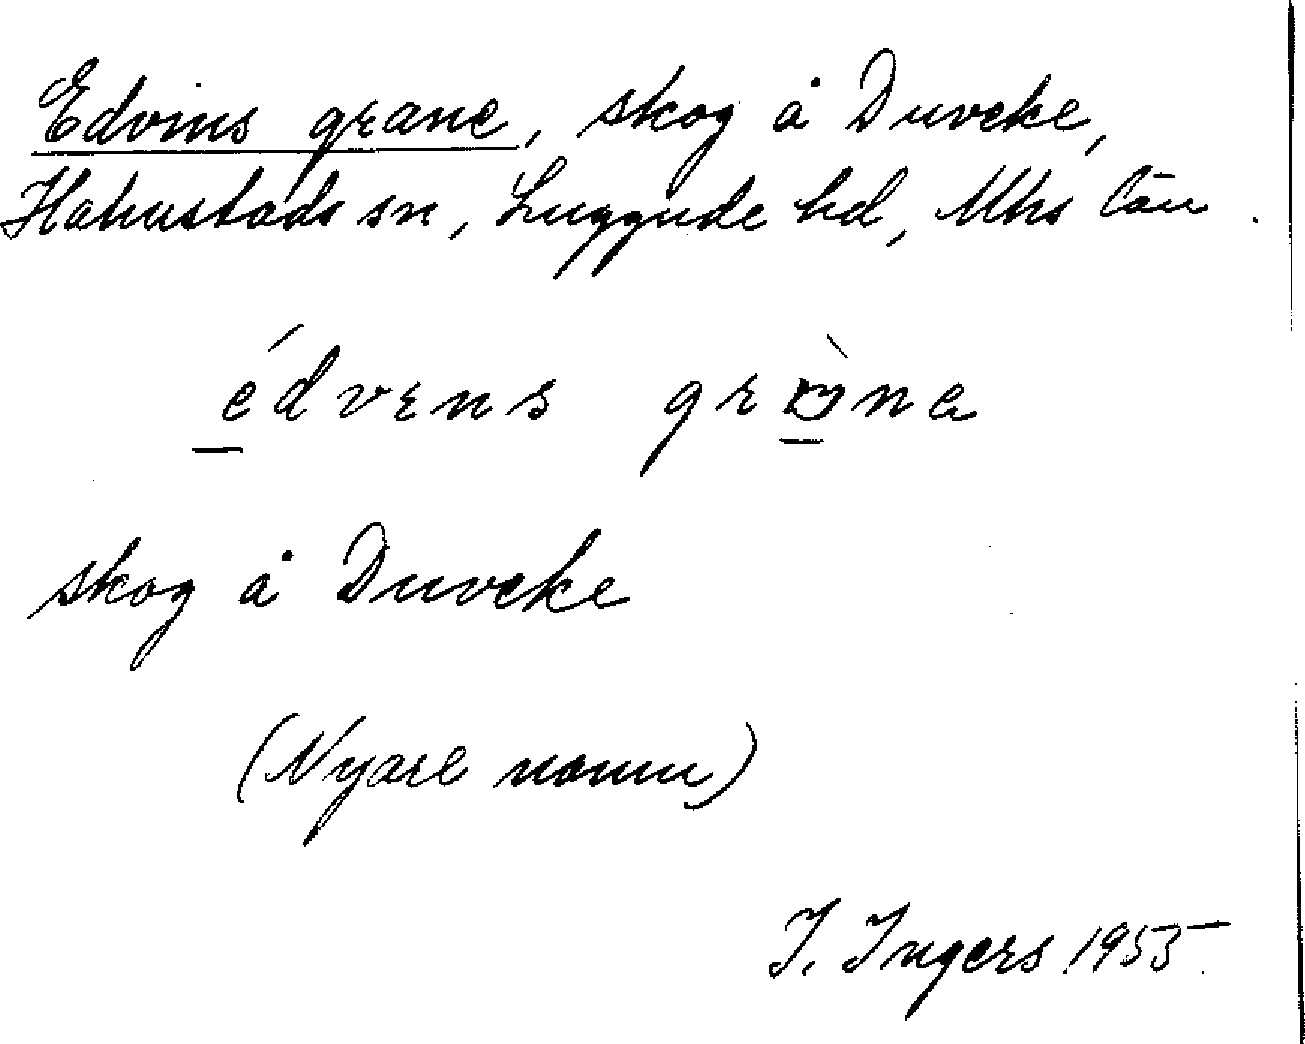 Edvins grane, skog å Duveke,
Halmstads sn, Luggude hd, Mhs län.
édvens gràna
skog å Duveke
(Nyare namn)
I. Ingers 1955.